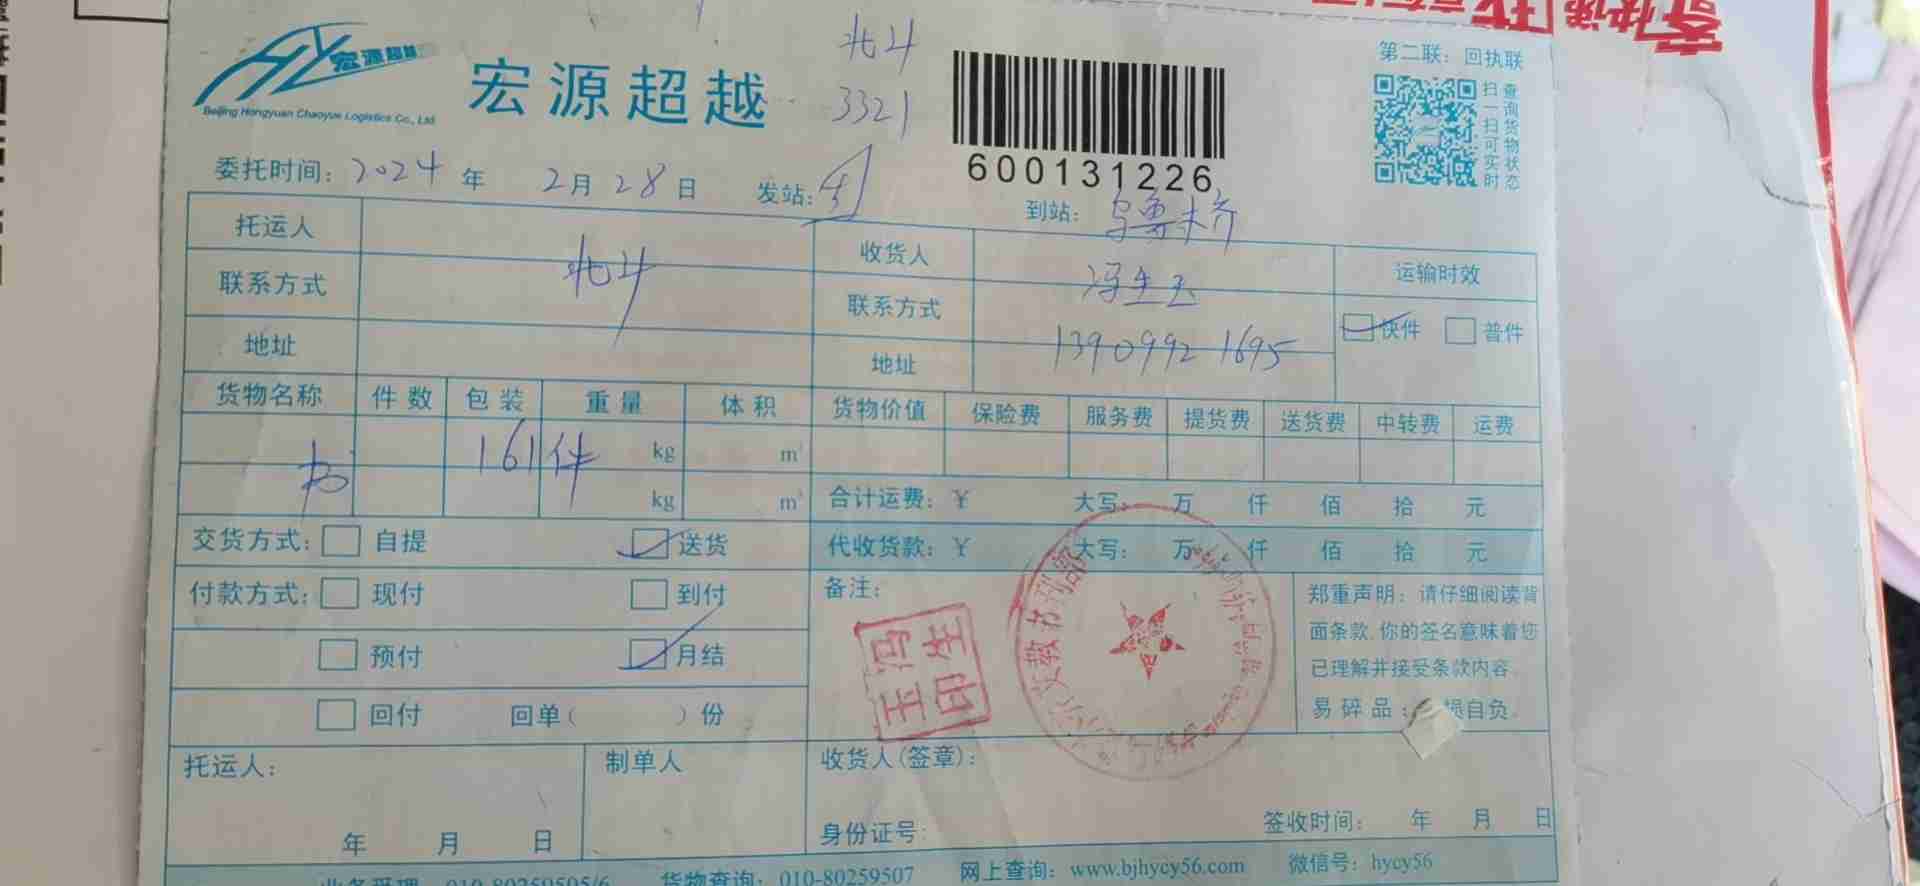 宏源超越
Beijing Hongyuan Chaoyue Logistics Co., Ltd
宏源超越
北斗
3321
600131226
第二联：回执联
扫一扫可实时
查询货物状态
委托时间：2024年2月28日 发站： 到站：乌鲁木齐
托运人 北斗 收货人 运输时效
联系方式 联系方式 13909921695 快件 普件
地址 地址
货物名称 件数 包装 重量 体积 货物价值 保险费 服务费 提货费 送货费 中转费 运费
书 161件 kg m³
kg m³ 合计运费：¥ 大写： 万 仟 佰 拾 元
交货方式： 自提 送货 代收货款：¥ 大写： 万 仟 佰 拾 元
付款方式： 现付 到付 备注：
预付 月结
回付 回单（ ）份
郑重声明：请仔细阅读背
面条款,你的签名意味着您
已理解并接受条款内容.
易碎品： 损自负.
托运人： 制单人 收货人(签章)：
年 月 日 身份证号： 签收时间： 年 月 日
货物查询：010-80259507 网上查询：www.bjhycy56.com 微信号：hycy56